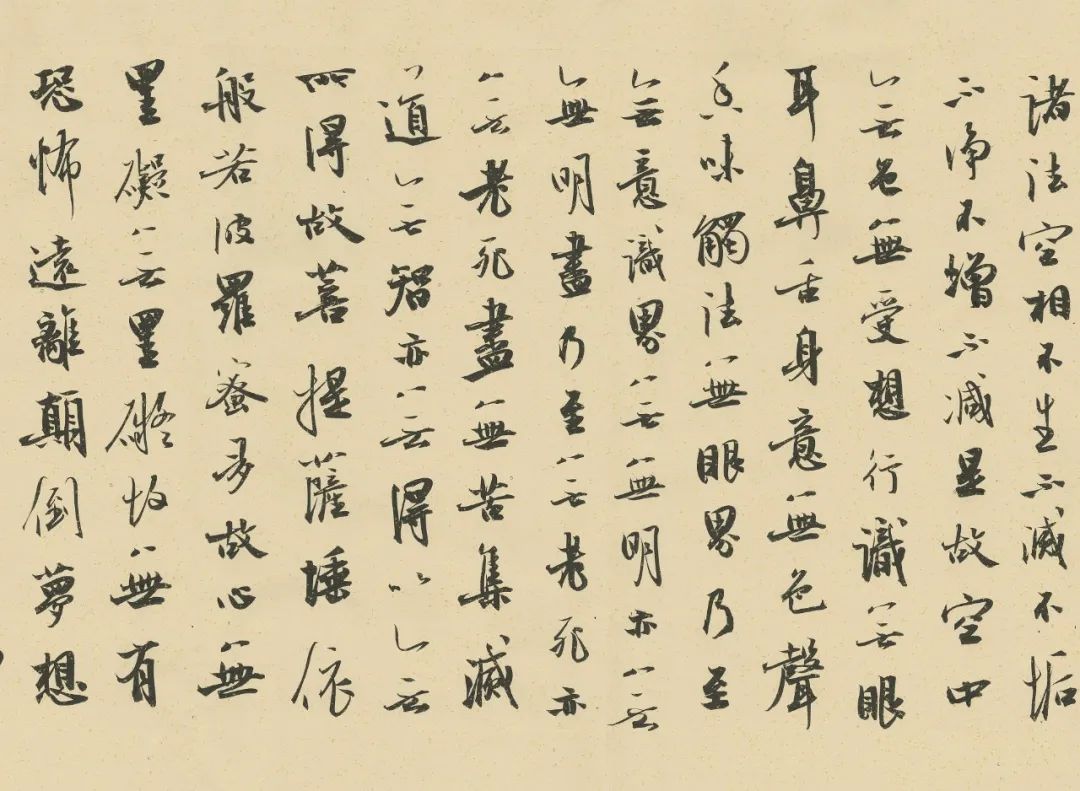 諸法空相不生不滅不垢
不淨不增不減是故空中
無色無受想行識無眼
耳鼻舌身意無色聲
香味觸法無眼界乃至
無意識界無無明亦無
無明盡乃至無老死亦
無老死盡無苦集滅
道無智亦無得以無
所得故菩提薩埵依
般若波羅蜜多故心無
罣礙無罣礙故無有
恐怖遠離顛倒夢想